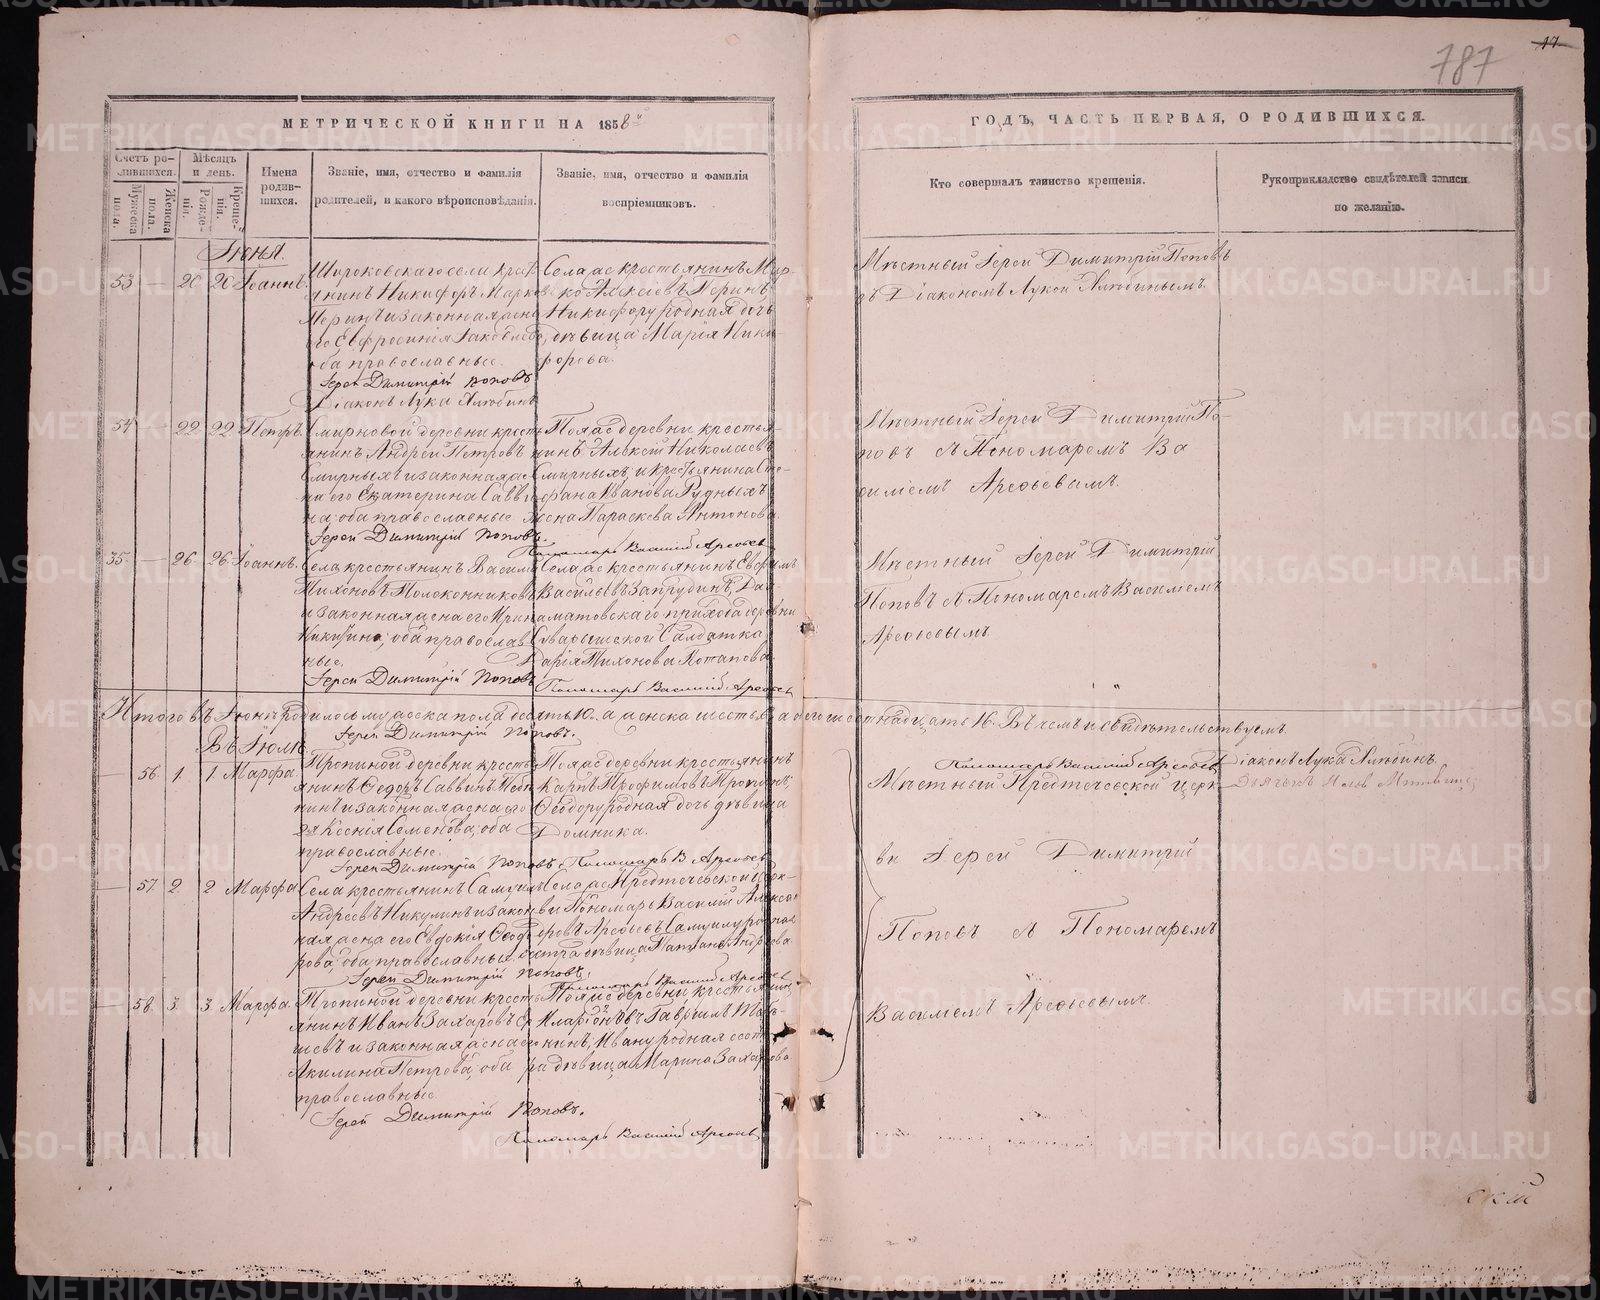 787
17
МЕТРИЧЕСКОЙ КНИГИ НА 1858й
ГОДЪ, ЧАСТЬ ПЕРВАЯ, О РОДИВШИХСЯ.
Счетъ ро-
дившихся.
Мужеска
пола.
Женска
пола.
Мѣсяцъ
и день.
Рожде-
нія.
Креще-
нія.
Имена
родив-
шихся.
Званіе, имя, отчество и фамилія
родителей, и какого вѣроисповѣданія.
Званіе, имя, отчество и фамилія
воспріемниковъ.
Кто совершалъ таинство крещенія.
Рукоприкладство свидѣтелей записи
по желанію.
Іюня.
53 — 20 20 Іоаннъ.
Широковскаго села крест
янинъ Никифоръ Марков
Перинъ и законная жена
его Евфросинія Іаковлева,
оба православные.
Іерей Димитрій Поповъ
Діаконъ Лука Хлюбинъ
Села ас крестьянинъ Мар-
ко Алексіевъ Перинъ
Никифору родная дочь
дѣвица Марія Ники-
форова.
Мѣстный Іерей Димитрій Поповъ
съ Діакономъ Лукой Хлюбинымъ
54 — 22 22 Петръ.
Смирновой деревни кресть
янинъ Андрей Петровъ
Смирныхъ и законная же-
на его Екатерина Савви
на; оба православные
Іерей Димитрій Поповъ.
Тояже деревни крестья-
нинъ Алексій Николаевъ
Смирныхъ и крестьянина Сте-
фана Иванова Рудныхъ
жена Параскева Антонова
Пономарь Василій Арефьев
Мѣстный Іерей Димитрій По-
повъ съ Пономаремъ Ва
силіемъ Арефьевымъ.
35 — 26 26 Іоаннъ.
Села крестьянинъ Василій
Тихоновъ Толоконниковъ
и законная жена его Ирина
Никитина; оба православ
ные.
Іерей Димитрій Поповъ
Села ас крестьянинъ Евфимъ
Васильевъ Запрудинъ, Да-
матовскаго прихода деревни
Солдатка
Дарія Тихонова Потапова
Пономарь Василій Арефьев
Мѣстный Іерей Димитрій
Поповъ съ Пономаремъ Василіемъ
Арефьевымъ.
Итого въ Іюнѣ родилось мужеска пола десять 10. а женска шесть 6. а всего шестнадцать 16. Въ чемъ и свидѣтельствуемъ.
Іерей Димитрій Поповъ.
Пономарь Василій Арефьев
Діаконъ Лука Хлюбинъ.
Въ Іюлѣ
— 56. 1. 1. Марфа.
Тропиной деревни кресть
янинъ Ѳедоръ Саввинъ
нинъ и законная жена его
Ксенія Семенова; оба
православные.
Іерей Димитрій Поповъ
Тояже деревни крестьянинъ
Карпъ Трофимовъ Тропинъ,
Ѳеодору родная дочь дѣвица
Домника.
Пономарь В Арефьев
Мѣстный Предтечевской церк
ви Іерей Димитрій
Поповъ съ Пономаремъ
Василіемъ Арефьевымъ.
— 57. 2. 2 Марфа
Села крестьянинъ Самуилъ
Андреевъ Никулинъ и закон
ная жена его Евдокія Ѳеодо
рова; оба православные
Іерей Димитрій Поповъ.
Села ас Предтечевской Церк-
ви Пономарь Василій Алексе
евъ Арефьевъ Самуилу родная
сестра дѣвица Татіана Андреева
Пономарь Василій Арефьев
— 58. 3. 3. Марфа.
Тропиной деревни кресть
янинъ Иванъ Захаровъ
шевъ и законная жена его
Акилина Петрова; оба
православные
Іерей Димитрій Поповъ.
Тояже деревни крестьянинъ
Иларіоновъ Гавріилъ
кинъ, Ивану родная сест
ра дѣвица Марина Захарова
Пономарь Василій Арефьев